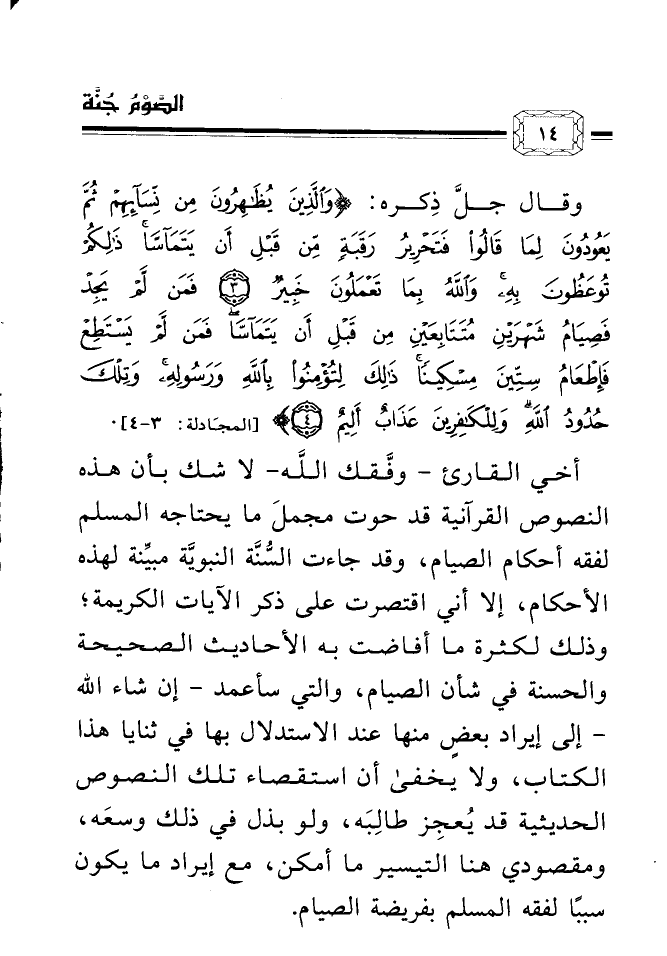 الصَّوْمُ جُنَّة
١٤
وقــال جــلَّ ذِكـره: ﴿وَٱلَّذِينَ يُظَـٰهِرُونَ مِن نِّسَآئِهِمْ ثُمَّ
يَعُودُونَ لِمَا قَالُوا۟ فَتَحْرِيرُ رَقَبَةٍ مِّن قَبْلِ أَن يَتَمَآسَّا ۚ ذَٰلِكُمْ
تُوعَظُونَ بِهِۦ ۚ وَٱللَّهُ بِمَا تَعْمَلُونَ خَبِيرٌ ٣ فَمَن لَّمْ يَجِدْ
فَصِيَامُ شَهْرَيْنِ مُتَتَابِعَيْنِ مِن قَبْلِ أَن يَتَمَآسَّا ۖ فَمَن لَّمْ يَسْتَطِعْ
فَإِطْعَامُ سِتِّينَ مِسْكِينًا ۚ ذَٰلِكَ لِتُؤْمِنُوا۟ بِٱللَّهِ وَرَسُولِهِۦ ۚ وَتِلْكَ
حُدُودُ ٱللَّهِ ۗ وَلِلْكَـٰفِرِينَ عَذَابٌ أَلِيمٌ ٤﴾ [المجادلة: ٣-٤].
أخي القارئ - وفَّقك اللَّه- لا شك بأن هذه
النصوص القرآنية قد حوت مجملَ ما يحتاجه المسلم
لفقه أحكام الصيام، وقد جاءت السُّنَّة النبويَّة مبيِّنة لهذه
الأحكام، إلا أني اقتصرت على ذكر الآيات الكريمة؛
وذلك لكثرة ما أفاضت به الأحاديث الصحيحة
والحسنة في شأن الصيام، والتي سأعمد - إن شاء الله
- إلى إيراد بعضٍ منها عند الاستدلال بها في ثنايا هذا
الكتاب، ولا يخفىٰ أن استقصاء تلك النصوص
الحديثية قد يُعجِز طالِبَه، ولو بذل في ذلك وسعَه،
ومقصودي هنا التيسير ما أمكن، مع إيراد ما يكون
سببًا لفقه المسلم بفريضة الصيام.